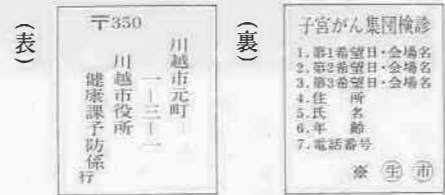 (表)
〒350
川越市元町
一ー三ー一
川越市役所
健康課予防係行
(裏)
子宮がん集団検診
1.第1希望日・会場名
2.第2希望日・会場名
3.第3希望日・会場名
4.住 所
5.氏 名
6.年 齢
7.電話番号
※ 生 市